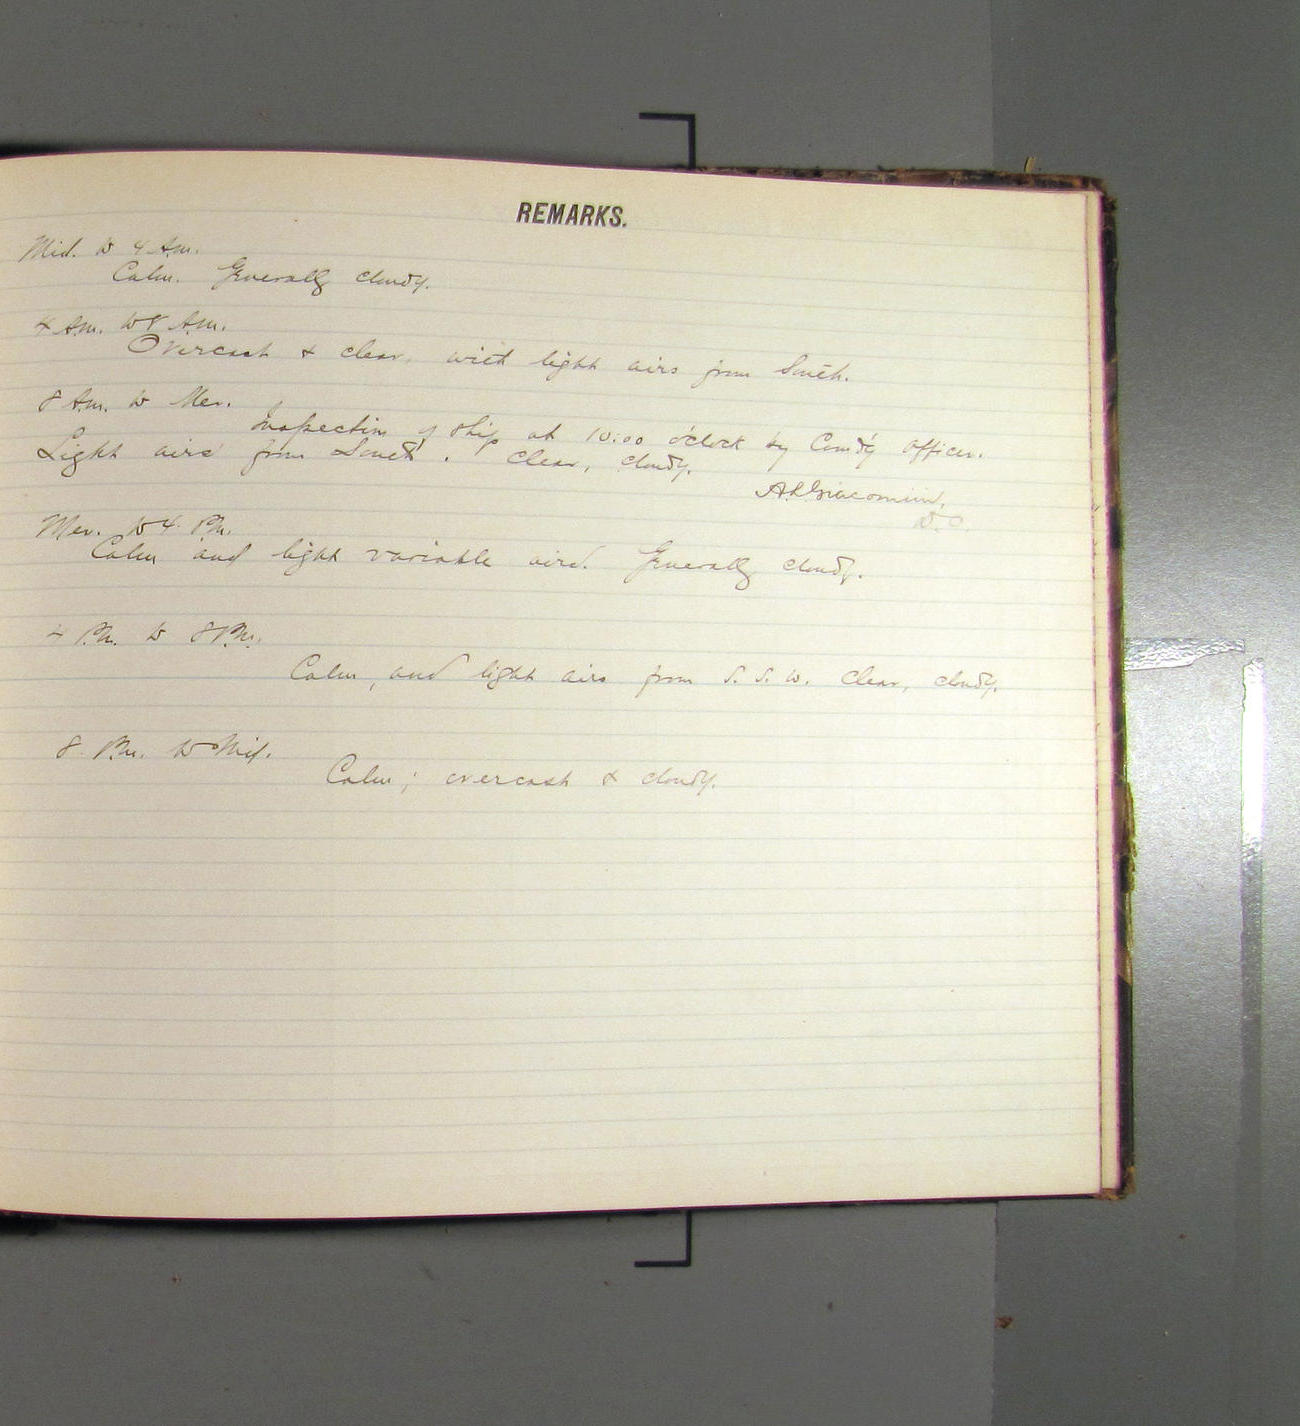 REMARKS.
Mid. to 4 Am.
Calm. Generally cloudy.
4 Am. to 8 Am.
Overcast & clear, with light airs from South.
8 Am. to Mer.
Inspection of ship at 10:00 o'clock by Com'd'g Officer.
Light airs from South. Clear, cloudy.
A.L. Giacomini,
Mer. to 4 Pm.
Calm and light variable airs. Generally cloudy.
4 Pm. to 8 Pm.
Calm, and light airs from S. S. W. Clear, cloudy.
8 Pm. to Mid.
Calm; overcast & cloudy.